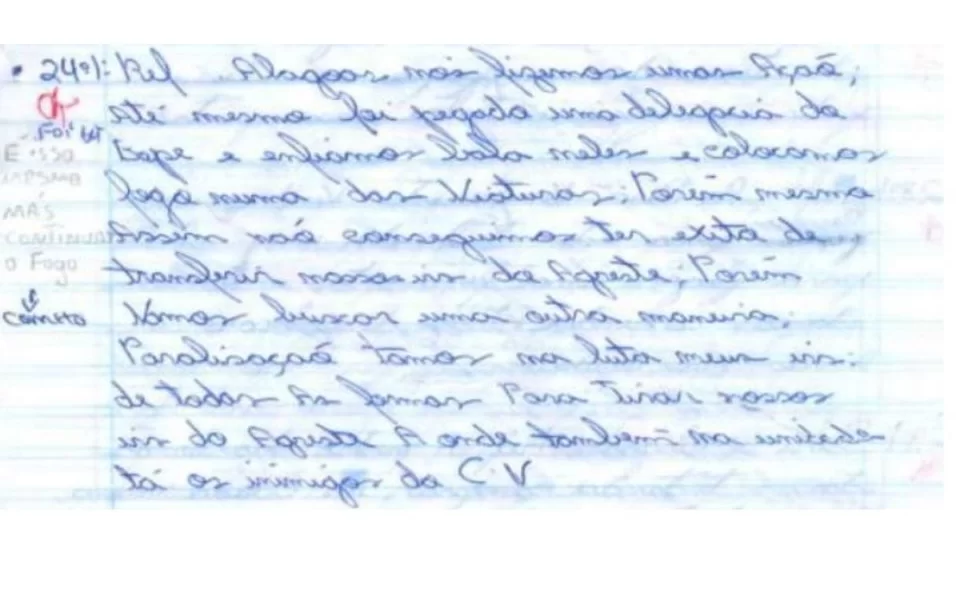 • 24º): Ref Alagoas nós fizemos umas Ação;
Até mesmo foi pegado uma delegacia da
Foi
E isso
Eape e enfiamos bala neles e colocamos
MESMO
fogo numa das Viaturas; Porém mesmo
MAS
Assim não conseguimos ter exito de
CONTINUAR
o Fogo
transferir nossos irs do Agreste; Porém
CORRETO
Vamos buscar uma outra maneira;
Paralisação tamos na luta meus irs:
de todas As formas Para Tirar nossos
irs do Agreste A onde também na unidade
tá os inimigos do C V